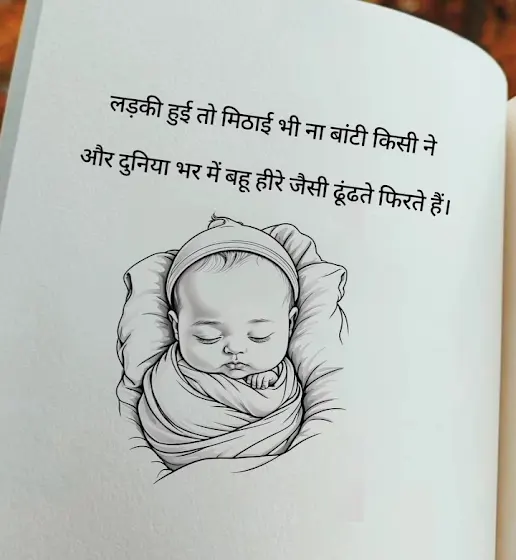 लड़की हुई तो मिठाई भी ना बांटी किसी ने
और दुनिया भर में बहू हीरे जैसी ढूंढते फिरते हैं।